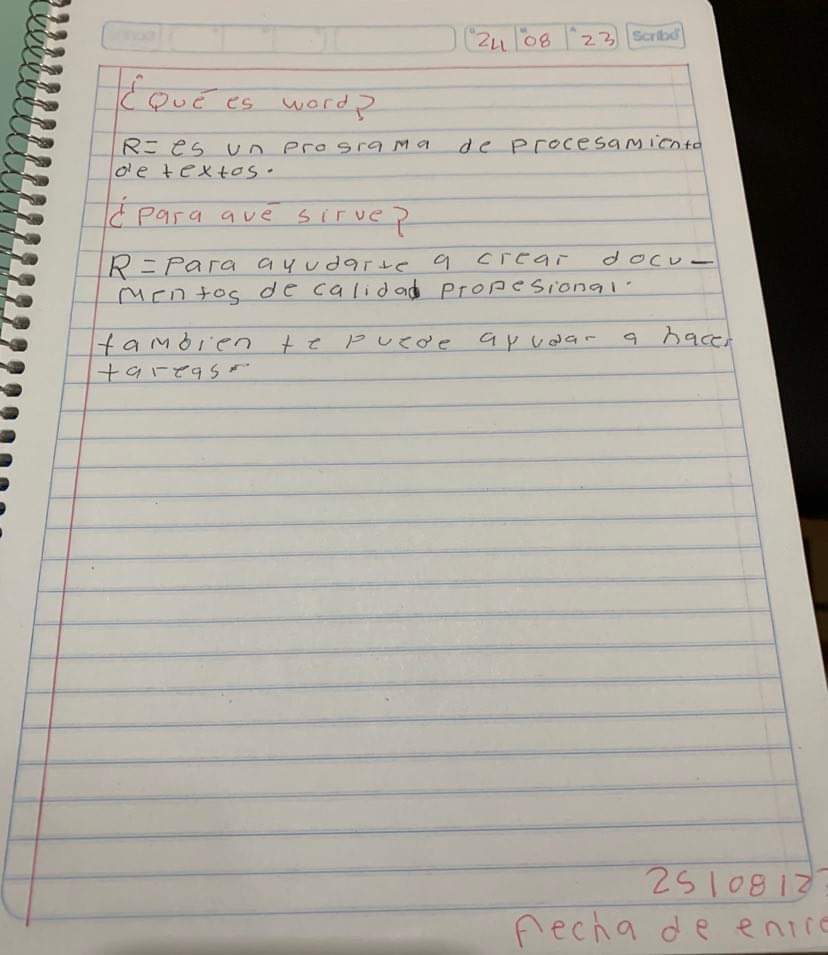 24 08 23 Scribe
¿Qué es word?
R= es un programa de procesamiento
de textos.
¿para qué sirve?
R= Para ayudarte a crear docu-
mentos de calidad profesional.
también te puede ayudar a hacer
tareas
25/08/2
fecha de